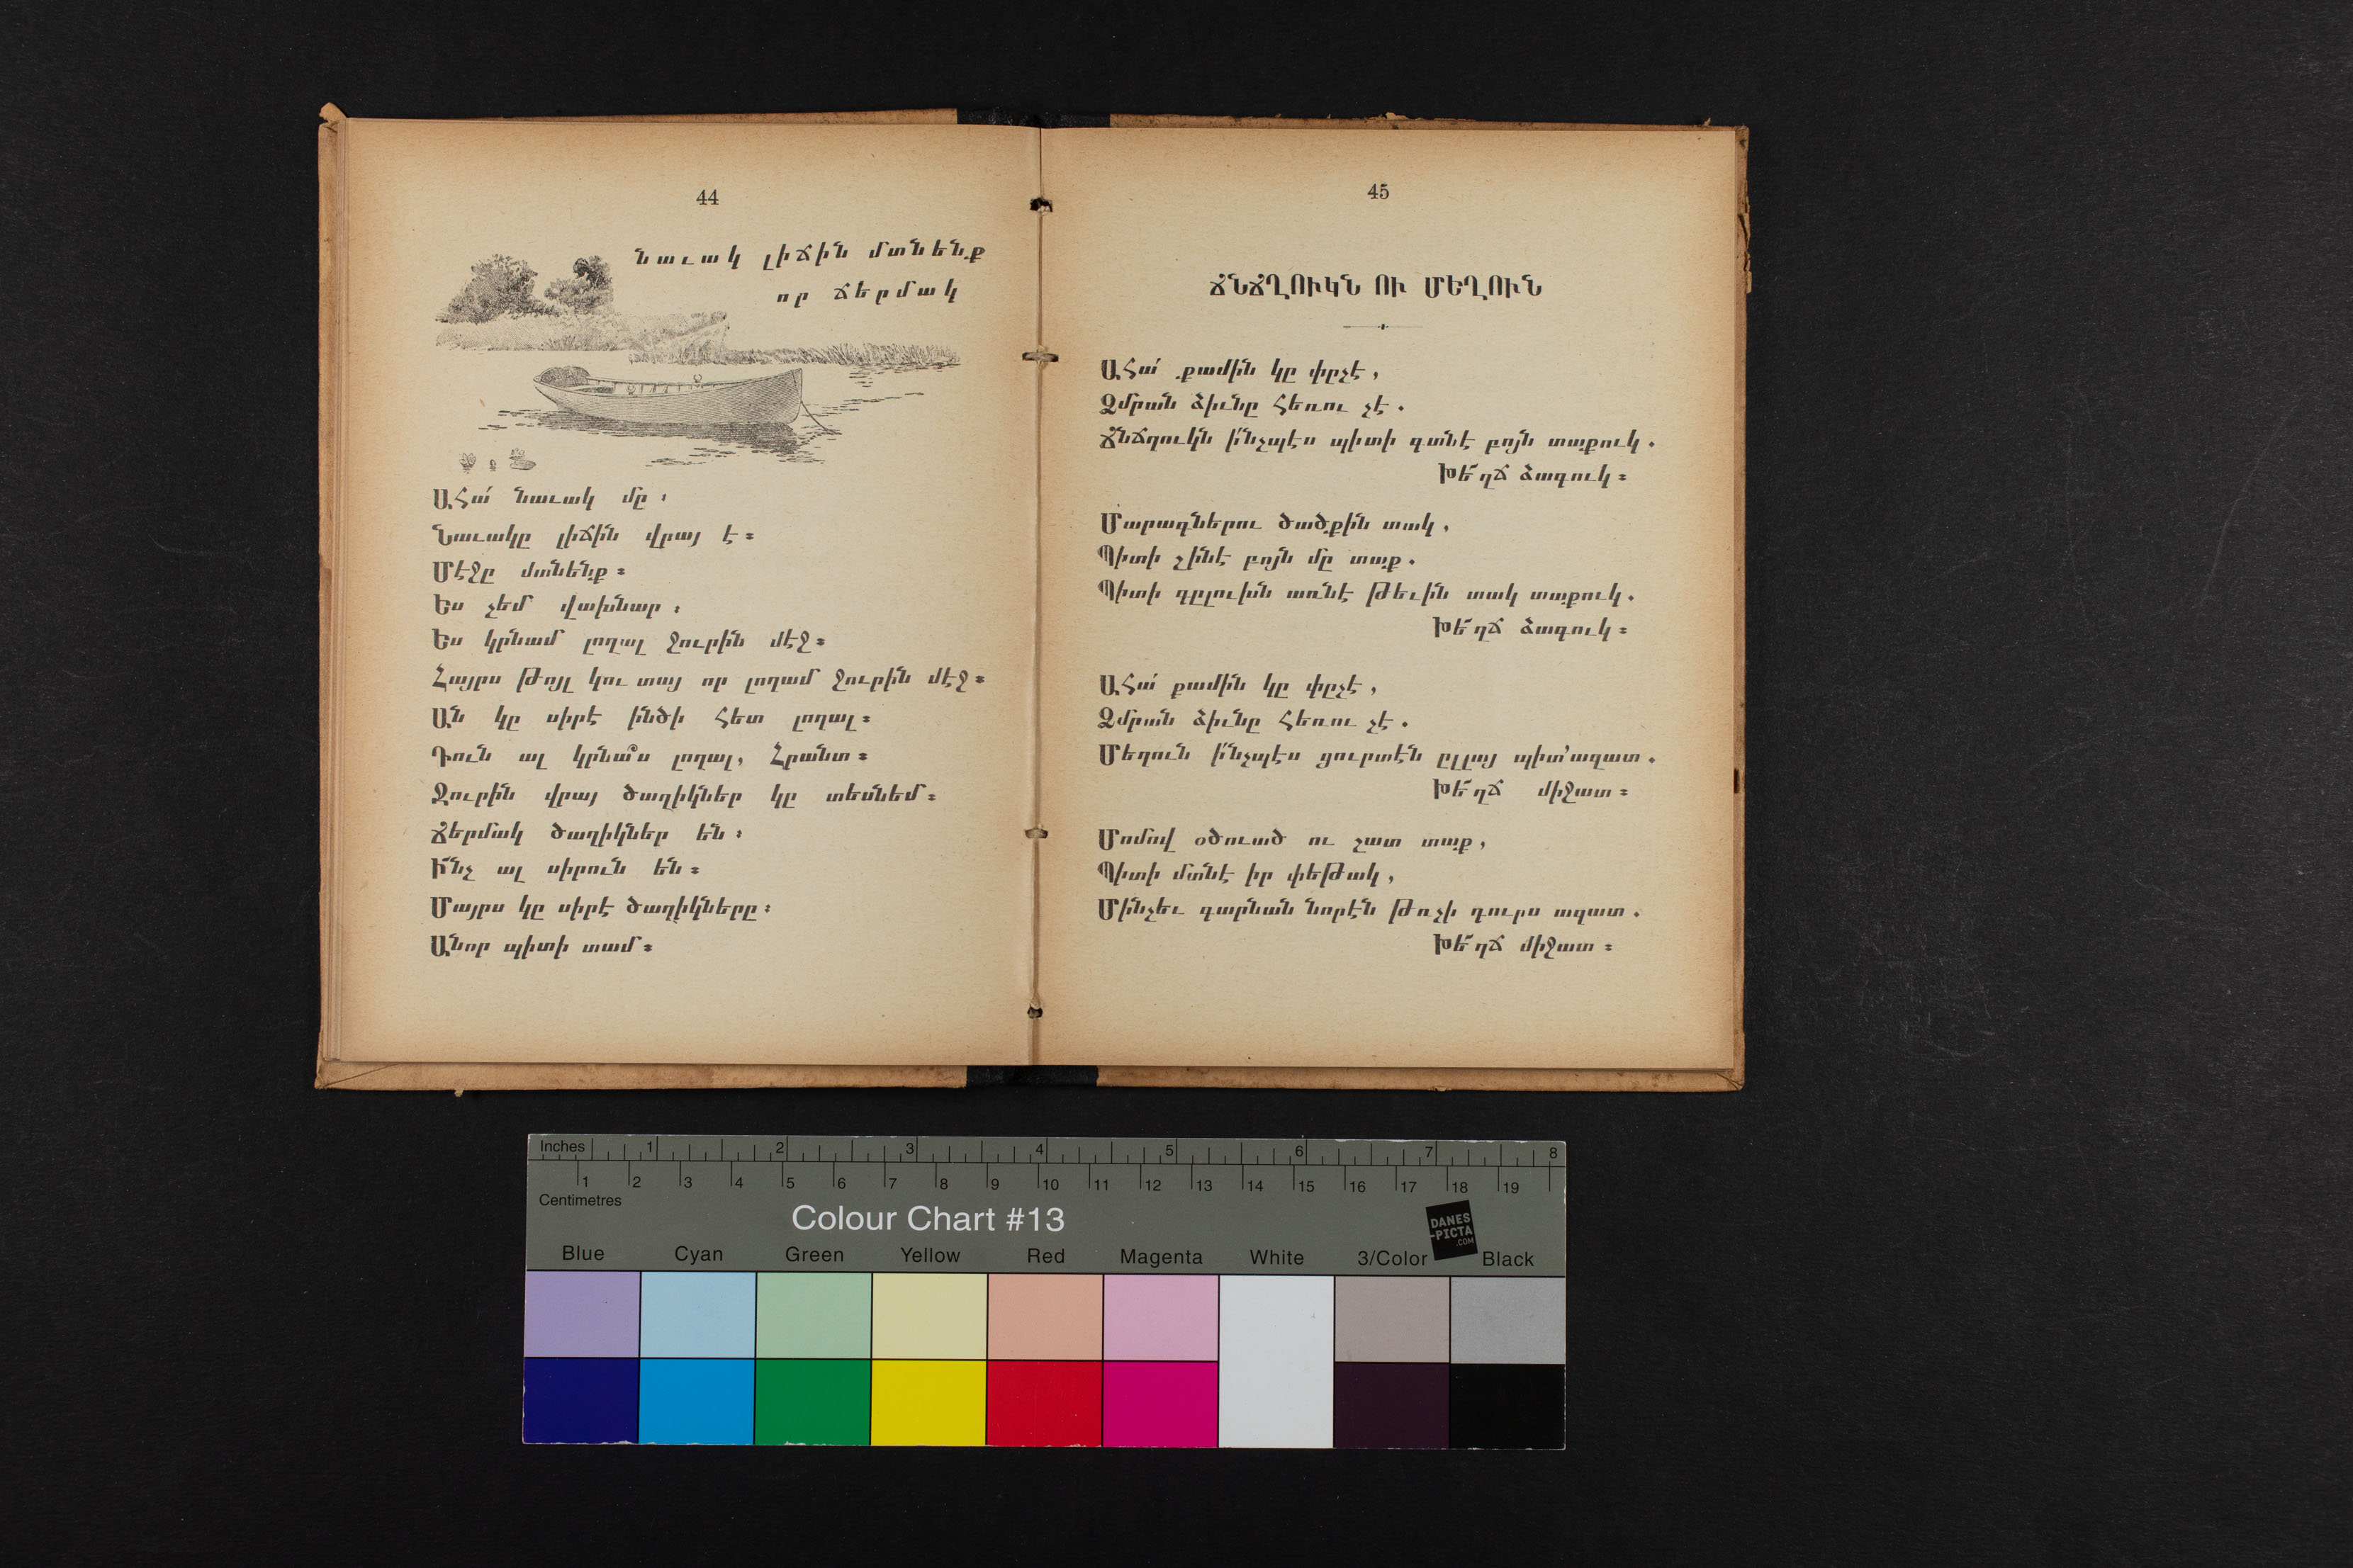 44
նաւակ լիճին մտնենք
որ ճերմակ
Ահա՛ նաւակ մը։
Նաւակը լիճին վրայ է։
Մէջը մտնենք։
Ես չեմ վախնար։
Ես կրնամ լողալ ջուրին մէջ։
Հայրս թոյլ կու տայ որ լողամ ջուրին մէջ։
Ան կը սիրէ ինծի հետ լողալ։
Դուն ալ կրնա՞ս լողալ, Հրանտ։
Ջուրին վրայ ծաղիկներ կը տեսնեմ։
Ճերմակ ծաղիկներ են։
Ի՜նչ ալ սիրուն են։
Մայրս կը սիրէ ծաղիկները։
Անոր պիտի տամ։
45
ՃՆՃՂՈՒԿՆ ՈՒ ՄԵՂՈՒՆ
Ահա՛ քամին կը փըչէ,
Ձմրան ձիւնը հեռու չէ.
Ճնճղուկն ի՜նչպէս պիտի գտնէ բոյն տաքուկ.
Խե՜ղճ ձագուկ։
Մարագներու ծածքին տակ,
Պիտի շինէ բոյն մը տաք.
Պիտի գըլուխն առնէ թեւին տակ տաքուկ.
Խե՜ղճ ձագուկ։
Ահա՛ քամին կը փըչէ,
Ձմրան ձիւնը հեռու չէ.
Մեղուն ի՜նչպէս ցուրտէն ըլլայ պիտ՚ազատ.
Խե՜ղճ միջատ։
Մոմով օծուած ու շատ տաք,
Պիտի մտնէ իր փեթակ,
Մինչեւ գարնան նորէն թռչի դուրս ազատ.
Խե՜ղճ միջատ։
Inches 1 2 3 4 5 6 7 8
1 2 3 4 5 6 7 8 9 10 11 12 13 14 15 16 17 18 19
Centimetres
Colour Chart #13
DANES
-PICTA
.COM
Blue Cyan Green Yellow Red Magenta White 3/Color Black